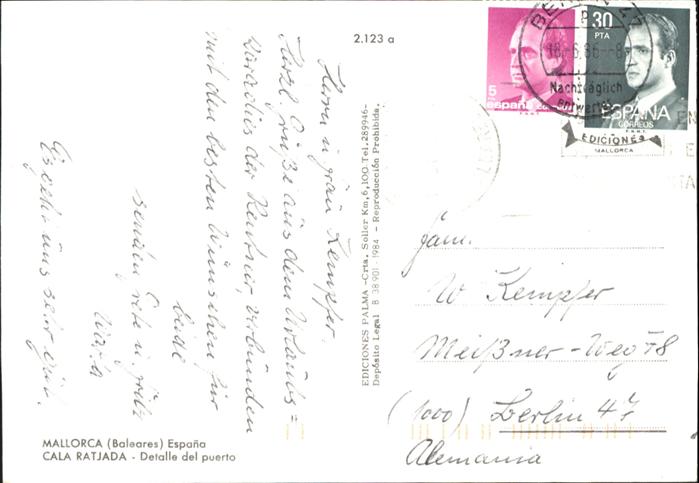 2.123 a
Herrn u. Frau Kempfer.
Herzl. Grüße aus dem Urlaubs=
paradies der Rentner, verbunden
mit den besten Wünschen für
beide
senden
Es geht uns sehr gut.
EDICIONES PALMA -Crta. Soller Km,6,100 Tel.289946-
Depósito Legal B 38.901 - 1984 - Reproducción Prohibida.
MALLORCA (Baleares) España
CALA RATJADA - Detalle del puerto
5
PTA
españa
30
PTA
ESPAÑA
CORREOS
F.N.M.T.
BERLIN 47
18.-6.86.-8
Nachträglich
entwertet
EDICIONES
MALLORCA
Fam.
W. Kempfer
Meißner-Weg 78
(1000) Berlin 47
Alemania